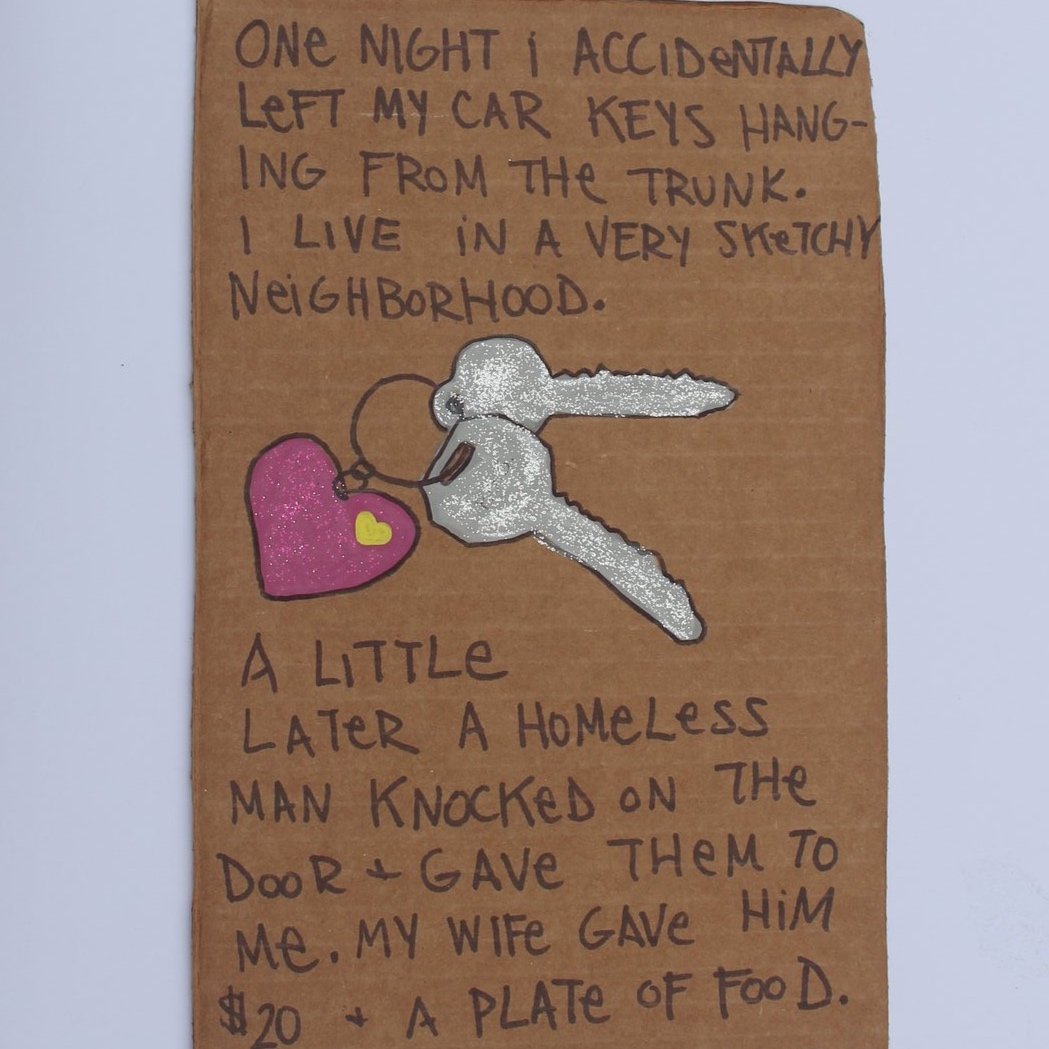 ONe NIGHT i ACCIDeNTALLY
LeFT MY CAR KEYS HANG-
ING FROM THe TRUNK.
I LIVE iN A VERY SKeTCHY
NeiGHBORHOOD.
A LiTTLe
LATeR A HOMeLeSS
MAN KNOCKeD ON THe
DOOR + GAVe THeM TO
Me. MY WIFe GAVe HiM
$20 + A PLATe OF FOOD.